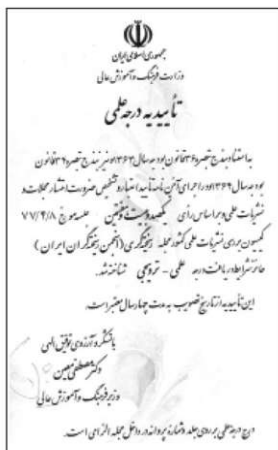 جمهوری اسلامی ایران
وزارت فرهنگ و آموزش عالی
تأییدیه درجه علمی
به استناد مندرج تبصره ۳۶ قانون بودجه سال ۱۳۶۳ و نیز مندرج تبصره ۳۹ قانون
بودجه سال ۱۳۶۴ و در اجرای آئین نامه تأیید اعتبار و تشخیص ضرورت انتشار مجلات و
نشریات علمی و براساس رأی جلسه مورخ ۷۷/۴/۸
کمیسیون بررسی نشریات علمی کشور مجله ریخته‌گری (انجمن ریخته‌گران ایران)
حائز شرایط دریافت درجه علمی - ترویجی شناخته شد.
این تأییدیه از تاریخ تصویب به مدت چهار سال معتبر است.
با تشکر و آرزوی توفیق الهی
دکتر مصطفی معین
وزیر فرهنگ و آموزش عالی
درج درجه علمی بر روی جلد و شماره پروانه در داخل مجله الزامی است.